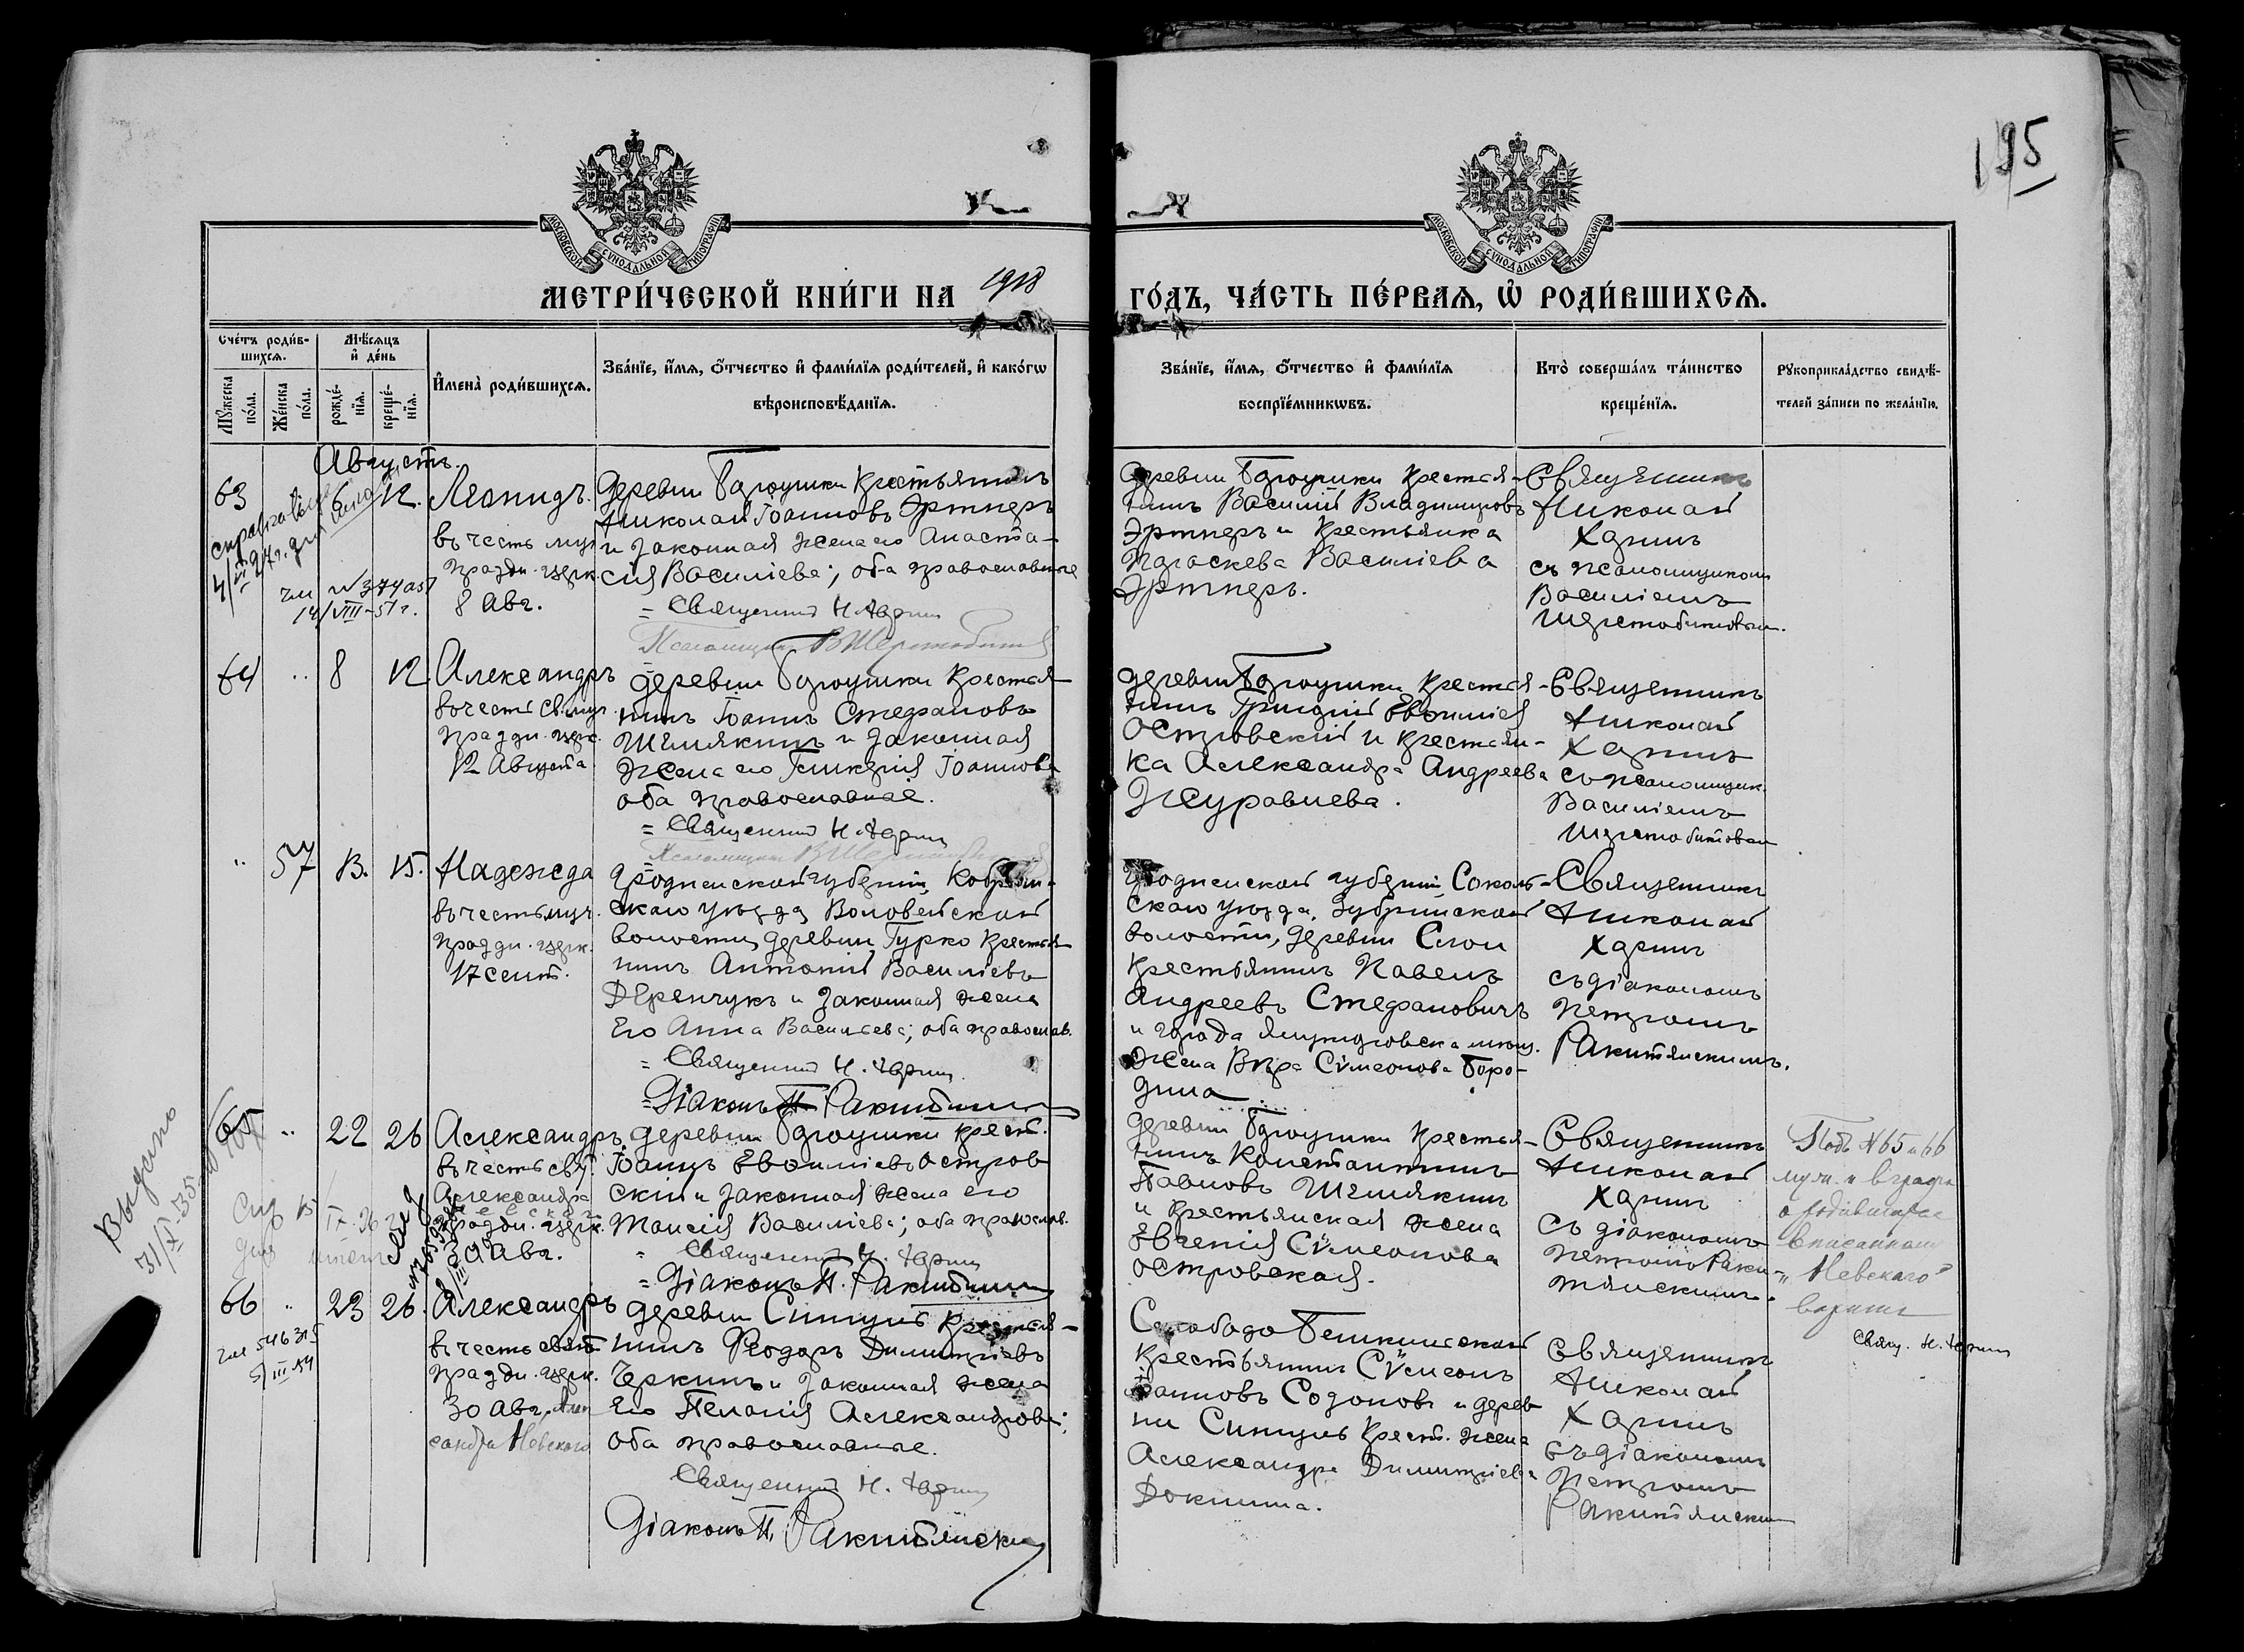 195
МОСКОВСКОЙ СѴНОДАЛЬНОЙ ТИПОГРАФІИ
МОСКОВСКОЙ СѴНОДАЛЬНОЙ ТИПОГРАФІИ
МЕТРИ́ЧЕСКОЙ КНИ́ГИ НА 1918 ГО́ДЪ, ЧА́СТЬ ПЕ́РВАѦ, Ѽ РОДИ́ВШИХСѦ.
Сче́тъ роди́в-
шихсѧ.
Мꙋжеска по́ла.
Же́нска по́ла.
Мѣ́сѧцъ и҆ де́нь
рожде́-
нїѧ.
креще́-
нїѧ.
И҆мена̀ роди́вшихсѧ.
Зва́нїе, и҆́мѧ, ѻ҆́тчество и҆ фами́лїѧ роди́телей, и҆ како́гѡ
вѣроисповѣ́данїѧ.
Зва́нїе, и҆́мѧ, ѻ҆́тчество и҆ фами́лїѧ
воспрїе́мникѡвъ.
Кто̀ соверша́лъ та́инство
креще́нїѧ.
Рꙋкоприкла́дство свидѣ́-
телей за́писи по жела́нїю.
Августъ.
63
6
12.
Леонидъ.
въ честь муч.
праздн. церк.
8 Авг.
14/VIII-51 г.
деревни Крестьянинъ
Николай Іоанновъ Эртнеръ
и законная жена его Анаста-
сія Василіева; оба православные
= Священникъ Н. Харинъ
деревни Крестья-
нинъ Василій Владимировъ
Эртнеръ и Крестьянка
Параскева Василіева
Эртнеръ.
Священникъ
Николай
Харинъ
съ псаломщикомъ
Василіемъ
64 " 8 12.
Александръ
въ честь Св. муч.
праздн. церк.
12 Августа
деревни Крестья-
нинъ Іоаннъ Стефановъ
Шемякинъ и законная
жена его Гликерія Іоаннова
оба православные.
= Священникъ Н. Харинъ
деревни Крестья-
нинъ Евѳиміев
Островскій и крестьян-
ка Александра Андреева
Журавлева.
Священникъ
Николай
Харинъ
съ псаломщик.
Василіемъ
" 57 13. 15.
Надежда
въ честь муч.
праздн. церк.
17 сент.
Гродненской губерніи, Кобрин-
скаго уѣзда Воловельской
волости, деревни Гурко Крестья
нинъ Антоній Василіевъ
Деренчукъ и законная жена
его Анна Васильева; оба православ.
= Священникъ Н. Харинъ.
= Діаконъ П. Ракитянскій
Гродненской губерніи Соколь-
скаго уѣзда, Зубринской
волости, деревни Слои
крестьянинъ Павелъ
Андреевъ Стефановичъ
и города
жена Вѣра Сѵмеонова Боро-
дина.
Священникъ
Николай
Харинъ
съ діакономъ
Петромъ
Ракитянскимъ.
Выдано
31/X-35
65 " 22 26
Александръ
въ честь свят.
Александра
Невскаго
праздн. церк.
30 Авг.
деревни Крест.
Іоаннъ Евѳиміевъ Остров
скій и законная жена его
Таисія Василіева; оба православ.
= Священникъ Н. Харинъ
= Діаконъ П. Ракитянскій
деревни Крестья-
нинъ Константинъ
Павловъ Шемякинъ
и Крестьянская жена
Евгенія Сѵмеонова
Островская.
Священникъ
Николай
Харинъ
съ діакономъ
Петромъ Раки-
тянскимъ.
Подъ № 65 и 66
муж. п. въ графѣ
о родившихся
вписанному
"Невскаго"
вѣрить
Свящ. Н. Харинъ
66 " 23 26.
546315
5/III-54
Александръ
въ честь свят.
праздн. церк.
30 Авг. Алек
сандра Невскаго
деревни Крестья-
нинъ Ѳеодоръ Димитріевъ
Черкинъ и законная жена
его Пелагія Александрова;
оба православные.
Священникъ Н. Харинъ
Діаконъ П. Ракитянскій
Слобода
крестьянинъ Сѵмеонъ
Іоанновъ Содоновъ и дерев
ни Крест. жена
Александра Димитріева
Докшина.
Священникъ
Николай
Харинъ
съ діакономъ
Петромъ
Ракитянским